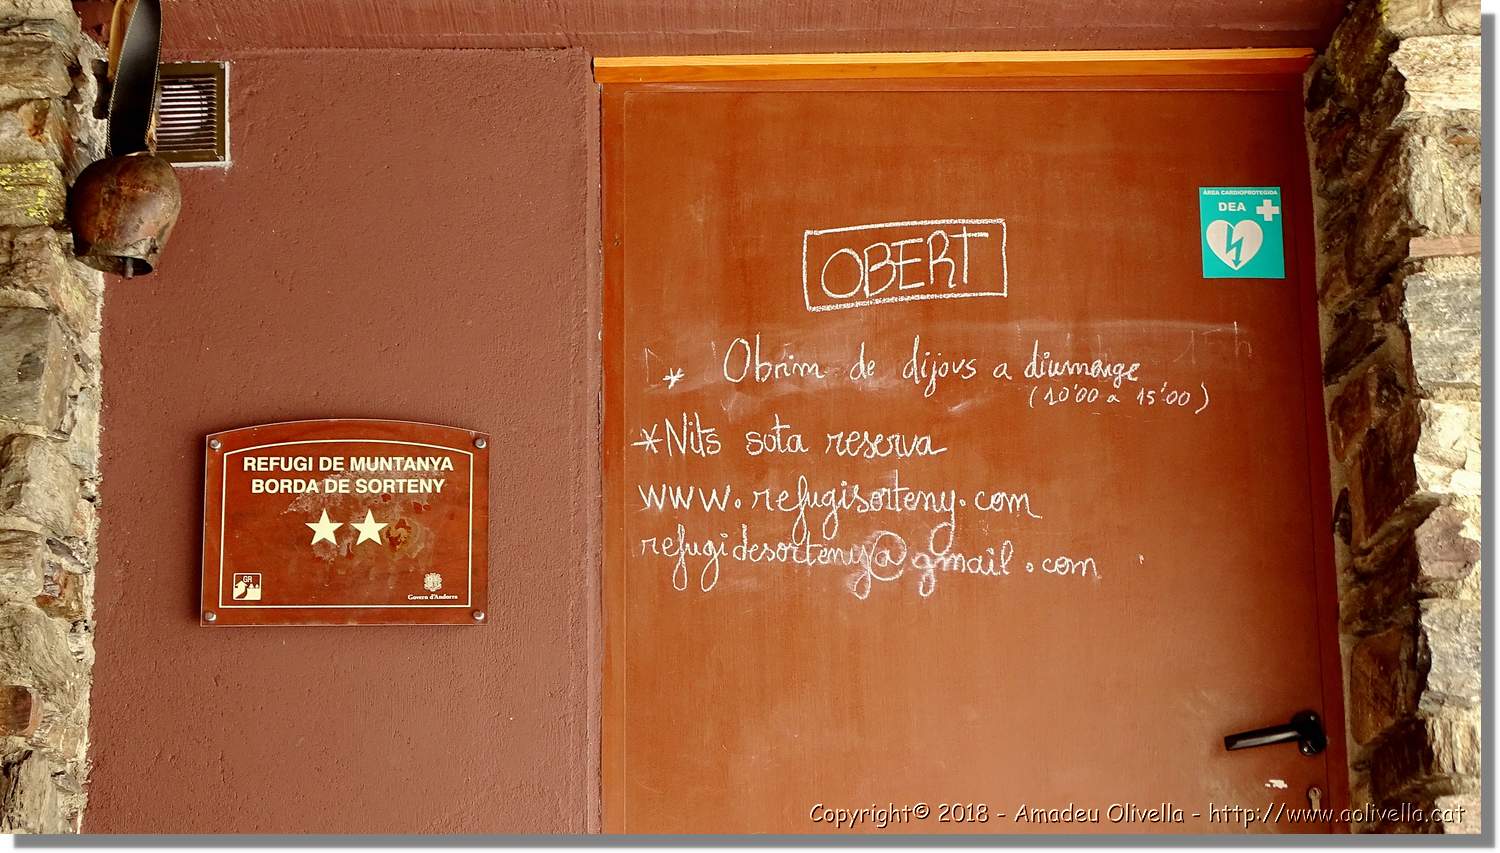 OBERT
* Obrim de dijous a diumenge
(10'00 a 15'00)
*Nits sota reserva
www.refugisorteny.com
refugidesorteny@gmail.com
REFUGI DE MUNTANYA
BORDA DE SORTENY
GR
Govern d'Andorra
ÀREA CARDIOPROTEGIDA
DEA
15h
Copyright© 2018 - Amadeu Olivella - http://www.aolivella.cat